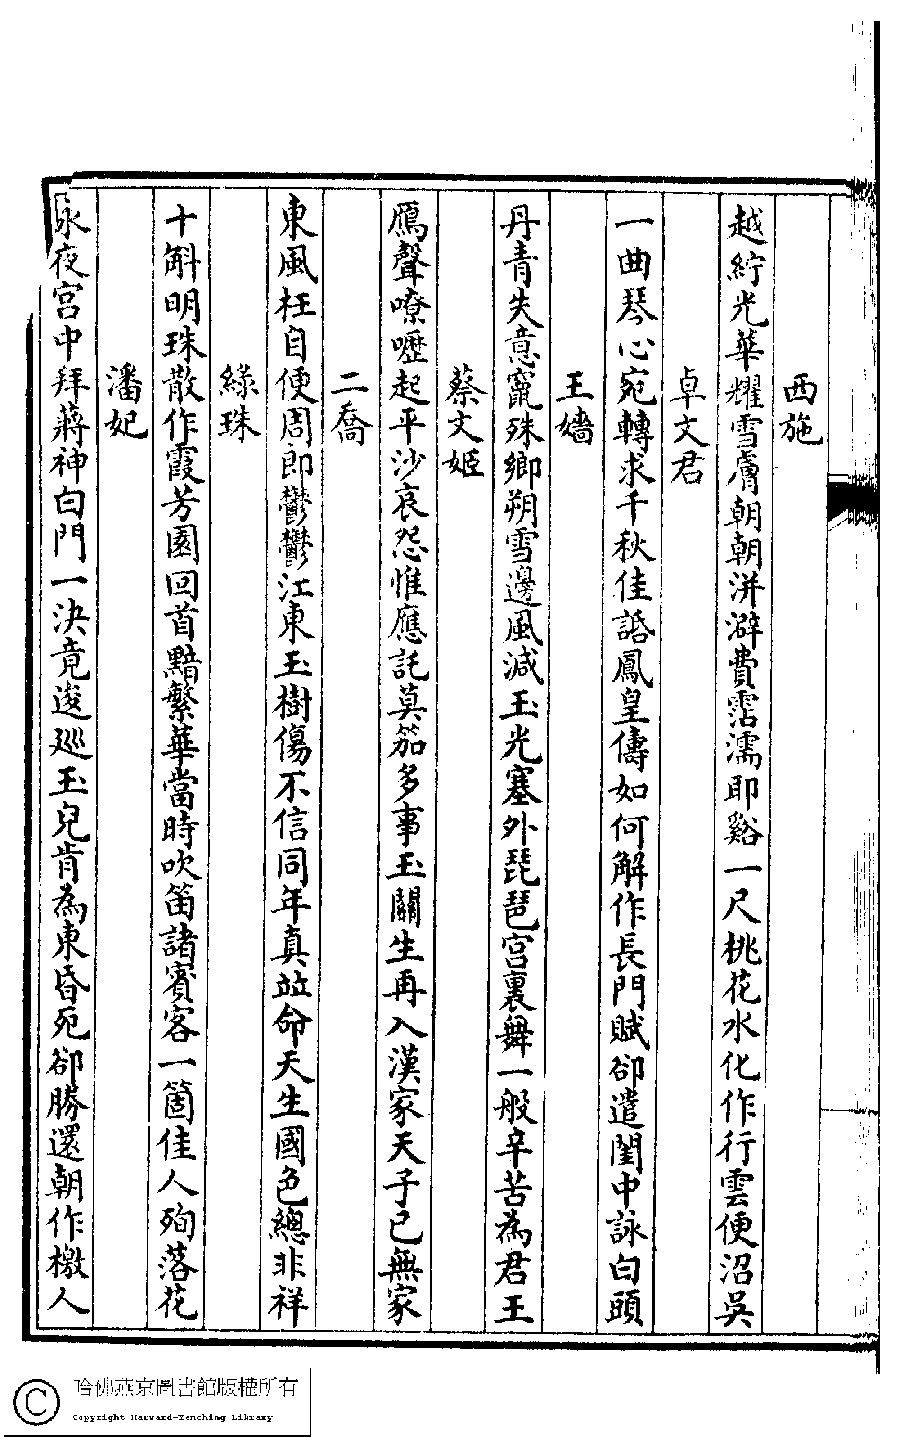 西施
越紵光華耀雪膚朝朝洴澼費霑濡耶谿一尺桃花水化作行雲便沼吳
卓文君
一曲琴心宛轉求千秋佳話鳳皇儔如何解作長門賦卻遣閨中詠白頭
王嬙
丹青失意竄殊鄉朔雪邊風減玉光塞外琵琶宮裏舞一般辛苦為君王
蔡文姬
鴈聲嘹嚦起平沙哀怨惟應託莫笳多事玉關生再入漢家天子已無家
二喬
東風枉自便周郎鬱鬱江東玉樹傷不信同年真竝命天生國色總非祥
綠珠
十斛明珠散作霞芳園回首黯繁華當時吹笛諸賓客一箇佳人殉落花
潘妃
永夜宮中拜蔣神白門一決竟逡巡玉兒肯為東昏死卻勝還朝作檄人
哈佛燕京圖書館版權所有
Copyright Harvard-Yenching Library